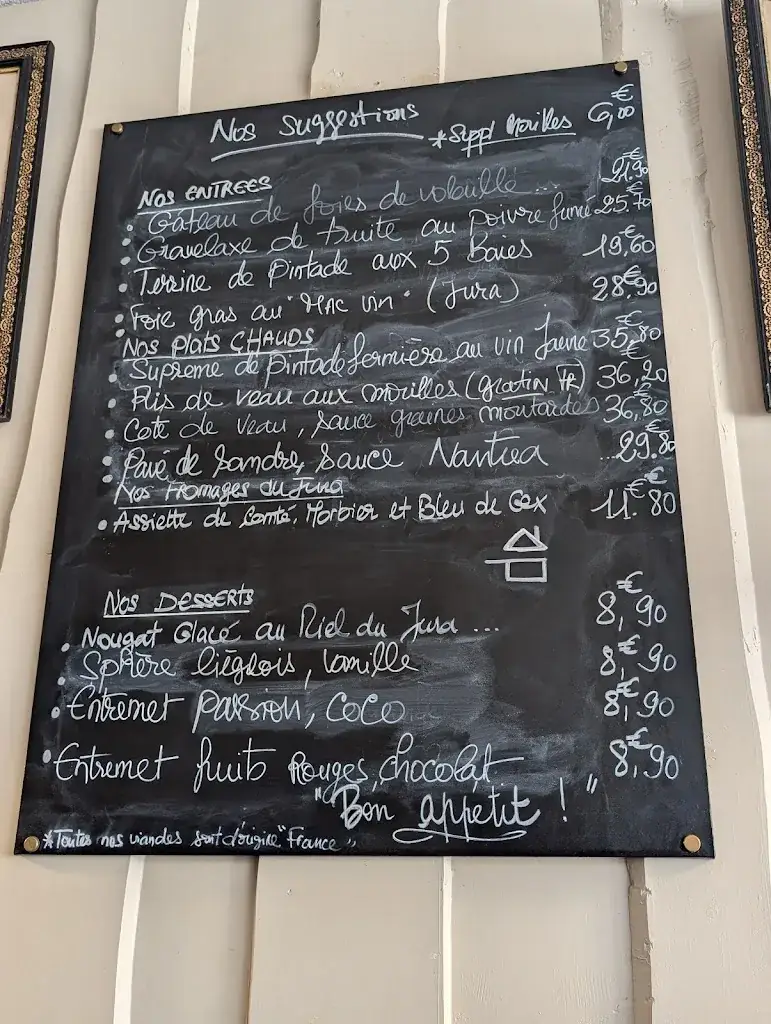 Nos suggestions
*Suppl Morilles 6,00€
Nos ENTREES
• Gâteau de foies de volaille ... 21.90€
• Gravelaxe de truite au poivre fumé 25.70€
• Terrine de Pintade aux 5 Baies 19,60€
• Foie gras au "Mac vin" (Jura) 28,90€
Nos Plats CHAUDS
• Supreme de pintade fermière au vin Jaune 35,80€
• Ris de veau aux morilles (gratin 36,20€
• Cote de veau, sauce graines moutardes 36,80€
• Pavé de Sandre, sauce Nantua ...29.80€
Nos Fromages du Jura
• Assiette de Comté, Morbier et Bleu de Gex 11.80€
Nos DESSERTS
• Nougat Glacé au Miel du Jura ... 8,90€
• Sphère liégeois, vanille 8,90€
• Entremet passion, coco 8,90€
• Entremet fruits Rouges, chocolat 8,90€
"Bon appetit !"
*Toutes nos viandes sont d'origine "France"